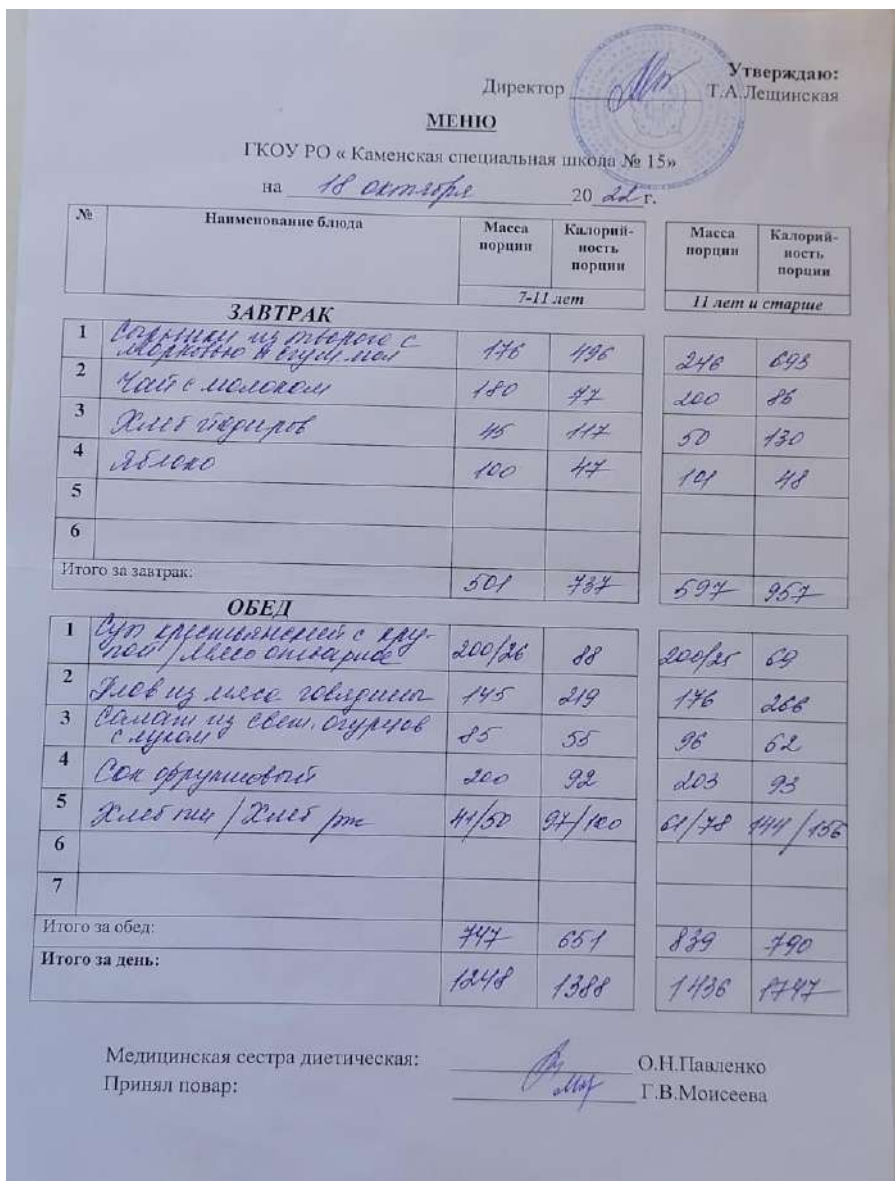 Утверждаю:
Директор Т.А.Лещинская
МЕНЮ
ГКОУ РО « Каменская специальная школа № 15»
на 18 октября 2022 г.
№ Наименование блюда Масса порции Калорий-ность порции Масса порции Калорий-ность порции
7-11 лет 11 лет и старше
ЗАВТРАК
1 из творога с
морковью и сгущ мол 176 496 246 693
2 Чай с молоком 180 77 200 86
3 Хлеб йодиров 45 117 50 130
4 Яблоко 100 47 101 48
5
6
Итого за завтрак: 501 737 597 957
ОБЕД
1 Суп крестьянский с кру-
пой /мясо отварное 200/26 88 200/25 69
2 Плов из мяса говядины 145 219 176 266
3 Салат из свеж. огурцов
с луком 85 55 96 62
4 Сок фруктовый 200 92 203 93
5 Хлеб пш / Хлеб рж 41/50 97/100 61/78 144/156
6
7
Итого за обед: 747 651 839 790
Итого за день: 1248 1388 1436 1747
Медицинская сестра диетическая: О.Н.Павленко
Принял повар: Г.В.Моисеева